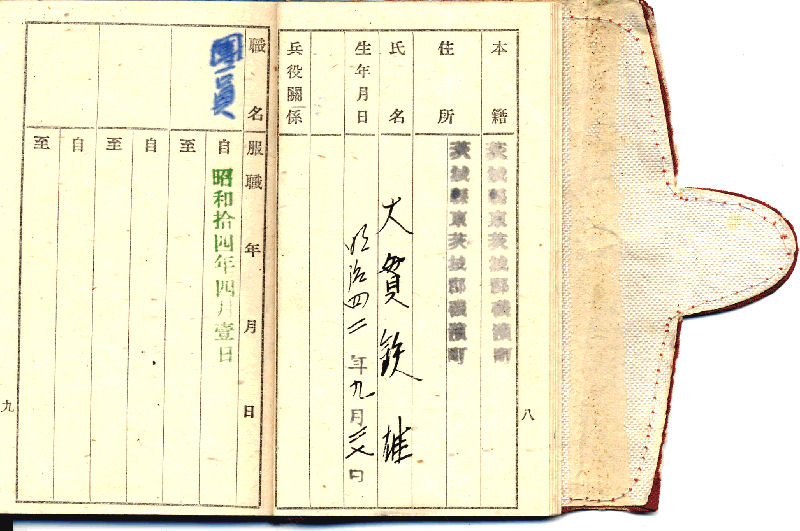 本籍 茨城縣東茨城郡磯濱町
住所 茨城縣東茨城郡磯濱町
氏名 大賀鉄雄
生年月日 明治四二年九月 日
兵役關係
八
職名 服職年月日
團員 自 昭和拾四年四月壹日
至
自
至
自
至
九